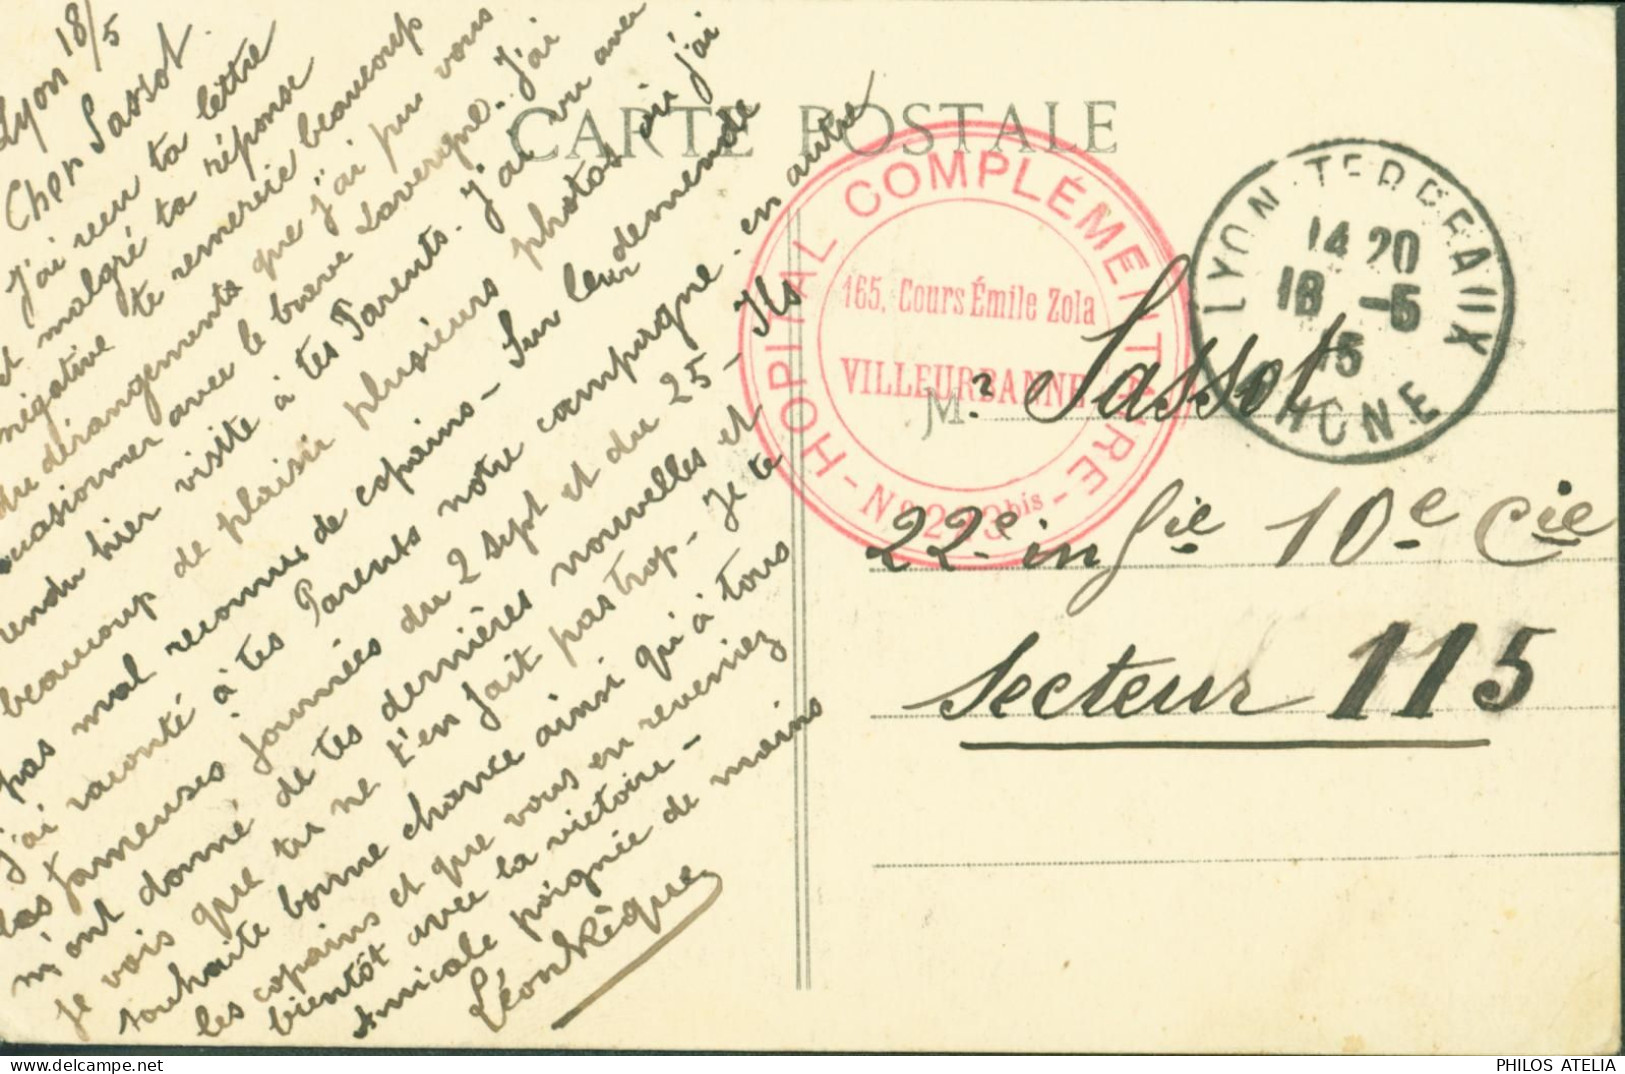 Lyon 18/5
Cher Sassot.
J'ai reçu ta lettre
et malgré ta réponse
négative te remercie beaucoup
du dérangements que j'ai pu vous
occasionner avec le brave Lavergne. J'ai
rendu hier visite à tes Parents. J'ai vu avec
beaucoup de plaisir plusieurs photos où j'ai
pas mal reconnu de copains - Sur leur demande
J'ai raconté à tes Parents notre campagne. en autre
las fameuses journées du 2 sept et du 25 - Ils
m'ont donné de tes dernières nouvelles et
je vois que tu ne t'en fait pas trop - Je te
souhaite bonne chance ainsi qu'à tous
les copains et que vous en reveniez
bientôt avec la victoire -
Amicale poignée de mains
Léon
CARTE POSTALE
HOPITAL COMPLÉMENTAIRE
165, Cours Émile Zola
VILLEURBANNE
- Nº 213 bis -
LYON-TERREAUX
14 20
18 -5
15
RHONE
Mr Sassot
22e inf ie 10e Cie
Secteur 115
PHILOS ATELIA